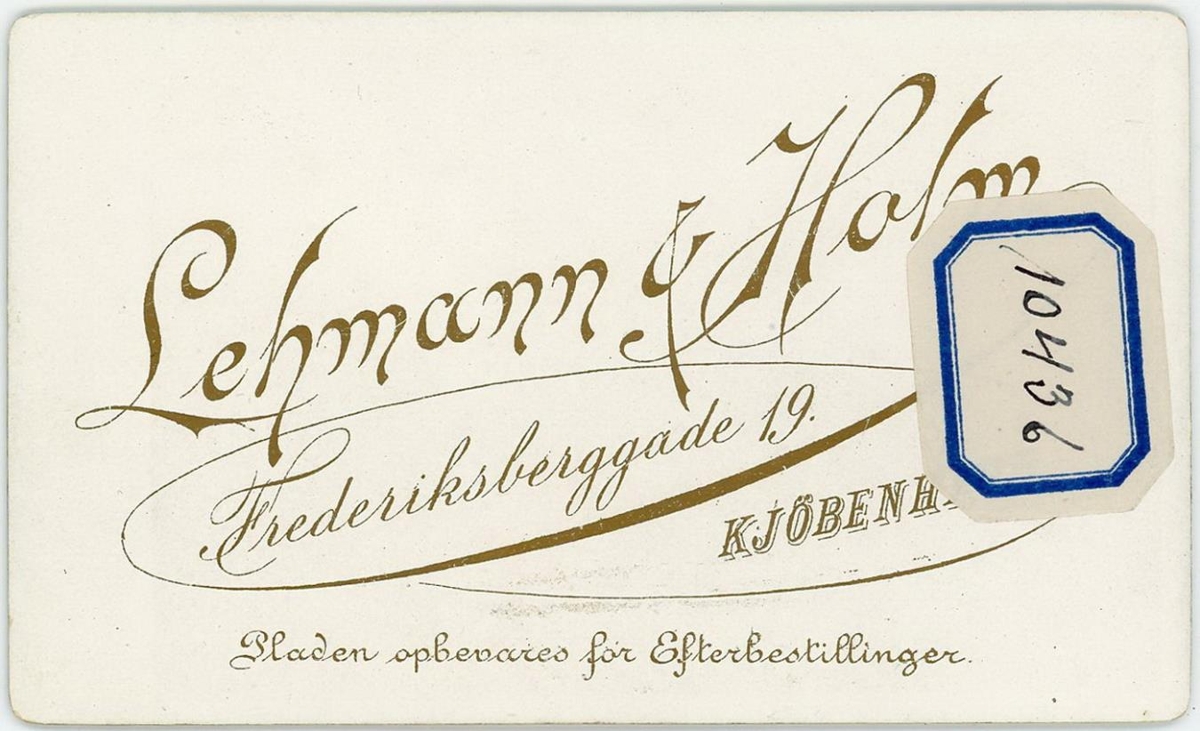 Lehmann & Holm
Frederiksberggade 19.
KJÖBENH
Pladen opbevares for Efterbestillinger.
10436